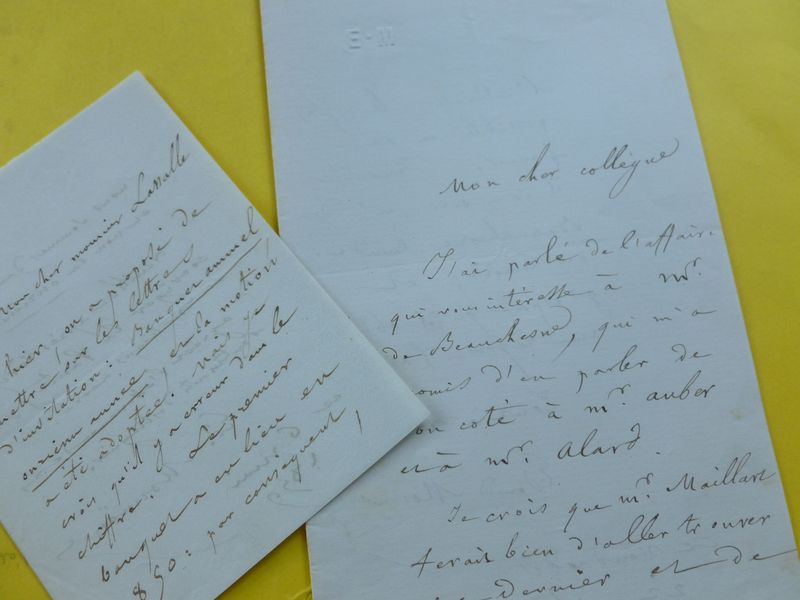 mon cher monsieur Lassalle
hier, on a proposé de
mettre sur les lettres
d'invitation: Banquet annuel
onzième année, et la motion
a été adoptée. mais je
crois qu'il y a erreur dans le
chiffre. Le premier
banquet a eu lieu en
850: par conséquent,
mon cher collègue
J'ai parlé de l'affaire
qui vous intéresse à mr.
de Beauchesne, qui m'a
promis d'en parler de
son coté à mr. auber
et à mr. Alard.
Je crois que mr. Maillart
ferait bien d'aller trouver
ce dernier et de